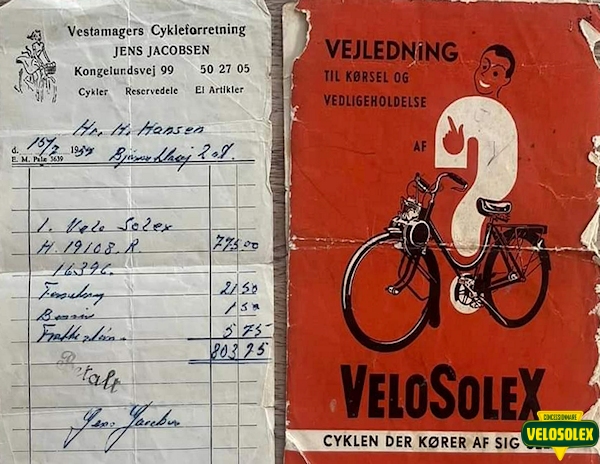 Vestamagers Cykleforretning
JENS JACOBSEN
Kongelundsvej 99 50 27 05
Cykler Reservedele El Artikler
Hr. H. Hansen
d. 15/7 19
E. M. Palæ 3639
1. Velo Solex
H. 19108. R. 775 00
16396.
Forsikring 21 50
Benzin 1 50
5 75
803 75
Betalt
Jens Jacobsen
VEJLEDNING
TIL KØRSEL OG
VEDLIGEHOLDELSE
AF
VELOSOLEX
CYKLEN DER KØRER AF SIG
CONCESSIONNAIRE
VELOSOLEX